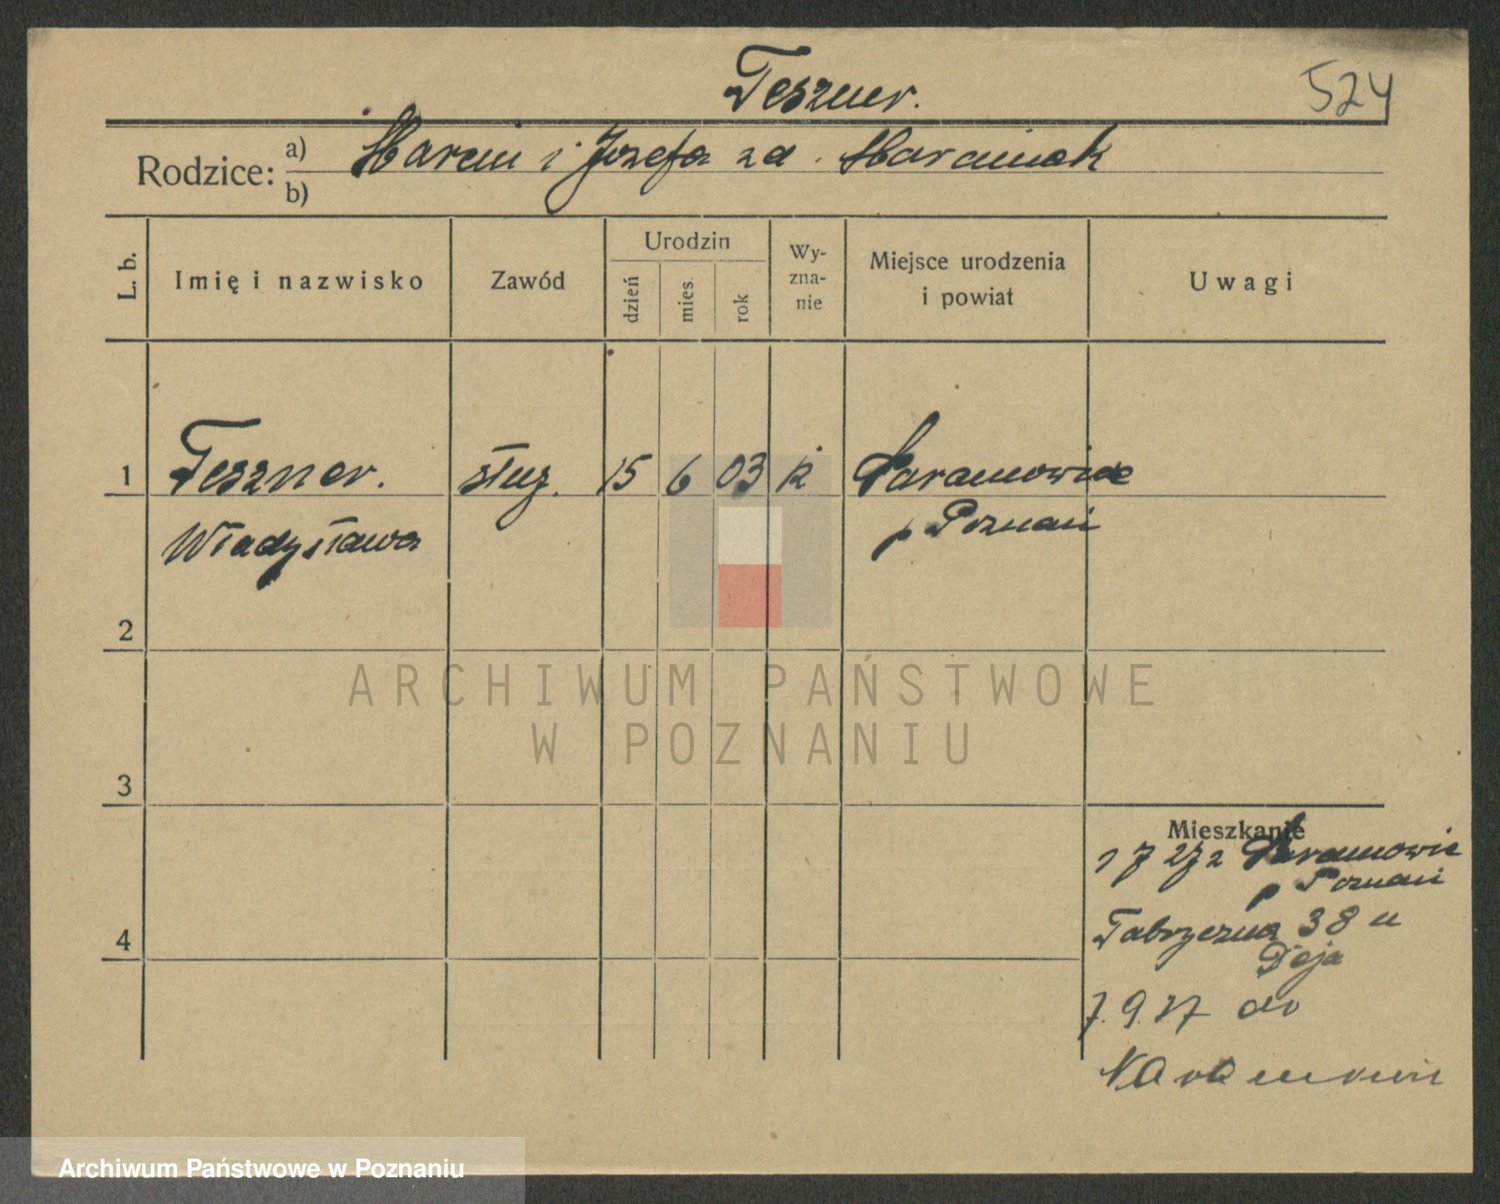 Teszner.
524
Rodzice: a) Marcin i Józefa zd. Marciniak
b)
L. b.
Imię i nazwisko
Zawód
Urodzin
dzień
mies.
rok
Wy-
zna-
nie
Miejsce urodzenia
i powiat
Uwagi
1 Teszner. służ. 15 6 03 k
Władysława p Poznań
2
ARCHIWUM PAŃSTWOWE
W POZNANIU
3
Mieszkanie
p Poznań
4
Fabryczna 38 u
Deja
7.9.27 do
Archiwum Państwowe w Poznaniu